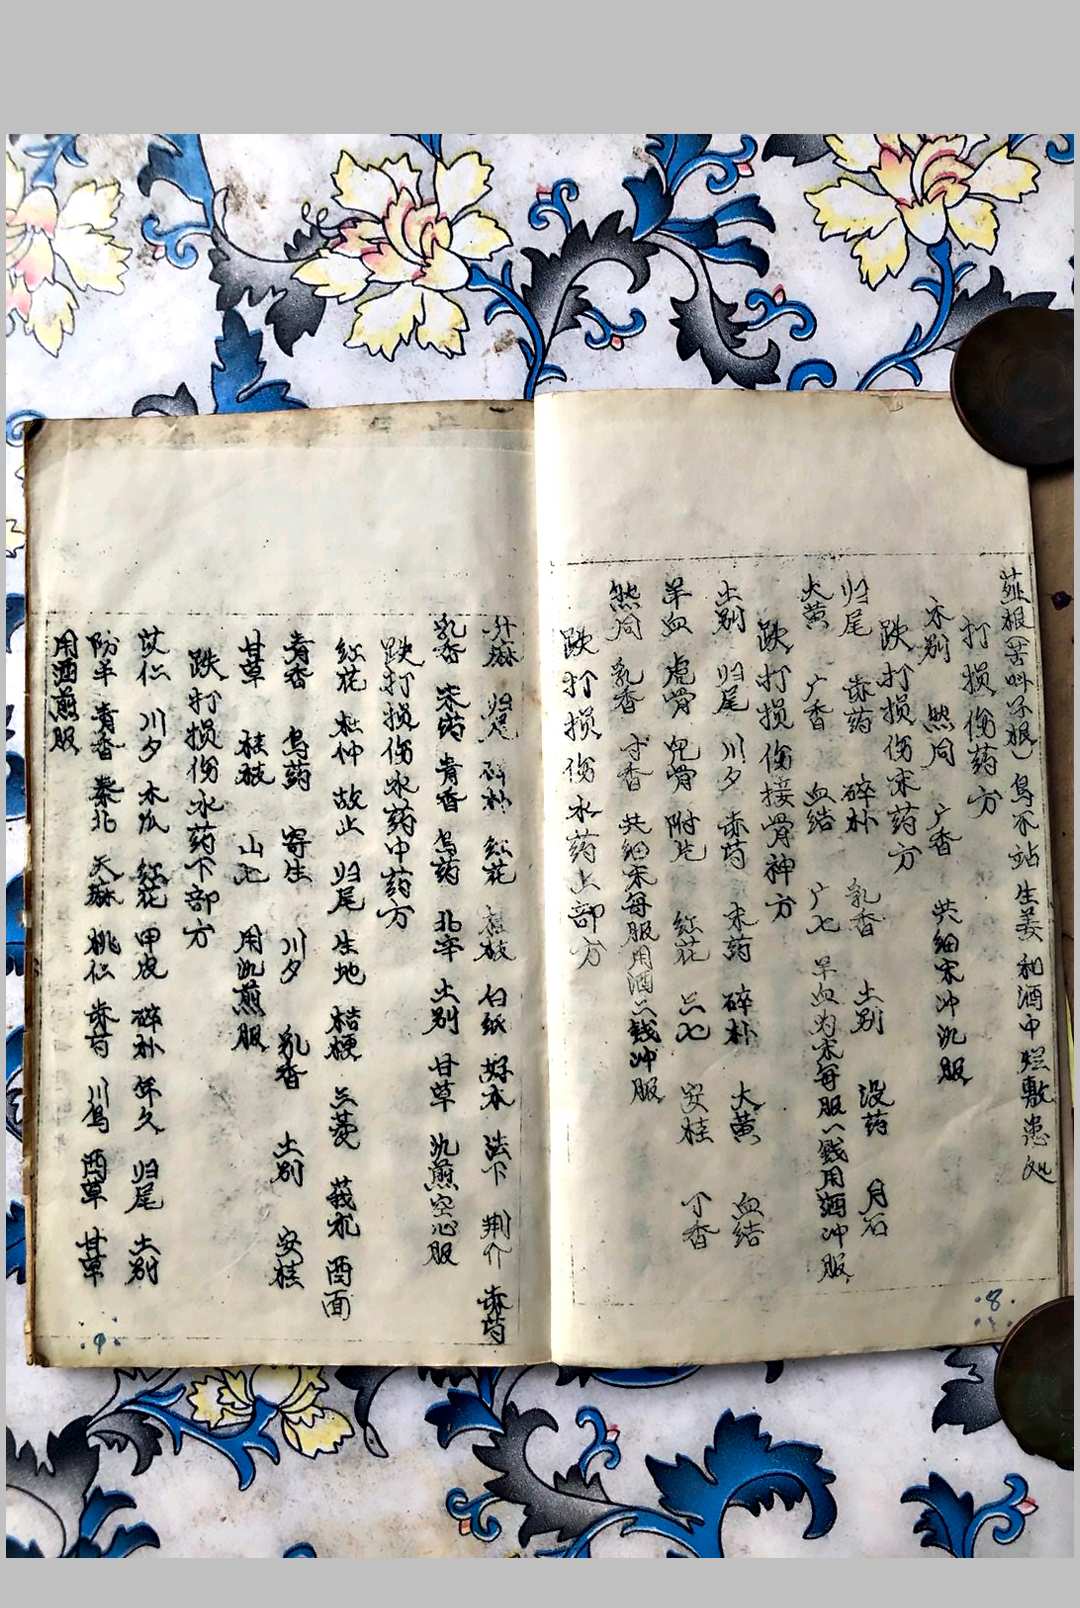 根(苦叫不根)鸟不站 生姜 和酒中烂敷患处
打损伤药方
木别 然同 广香 共细末冲氿服
跌打损伤末药方
归尾 赤药 碎朴 乳香 土别 没药 月石
大黄 广香 血结 广七 羊血为末每服一钱用酒冲服
跌打损伤接骨神方
土别 归尾 川夕 赤芍 末药 碎朴 大黄 血结
羊血 虎骨 附片 红花 三七 安桂 寸香
然同 乳香 寸香 共细末每服用酒三钱冲服
跌打损伤水药上部方
升麻 归尾 碎朴 红花 桂枝 白纸 好本 法下 荆介 赤芍
乳香 末药 青香 乌药 北辛 土别 甘草 氿煎空心服
跌打损伤水药中药方
红花 杜仲 故止 归尾 生地 桔梗 三菱 莪朮 酉面
青香 乌药 寄生 川夕 乳香 土别 安桂
甘草 桂枝 山七 用氿煎服
跌打损伤水药下部方
苡仁 川夕 木瓜 红花 甲皮 碎朴 归尾 土别
防羊 青香 秦北 天麻 桃仁 赤芍 川乌 酉草 甘草
用酒煎服
8
9